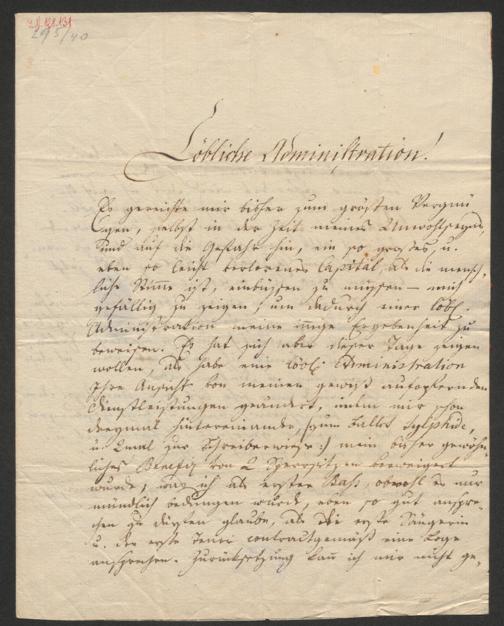 295/40
Löbliche Administration!
Es gereichte mir bisher zum grösten Vergnü
gen, selbst in der Zeit meines Unwohlseyns,
und auf die Gefahr hin, ein so großes, u.
eben so leicht verlorenes Capital, als die mensch-
liche Stimme ist, einbüssen zu müssen – mich
gefällig zu zeigen, um dadurch einer löbl.
Administration meine innige Ergebenheit zu
beweisen. Es hat sich aber dieser Tage zeigen
wollen, als habe eine löbl: Administration
Ihre Ansicht von meinen gewiß aufopfernden
Dienstleistungen geändert, indem mir schon
dreymal hintereinander, (zum Ballet Sylphide,
u. 2mal zur Schreiberwiese:) mein bisher gewöhn-
liches Benefiz von 2 Sperrsitzen verweigert
wurde, was ich als erster Bass, obwohl es nur
mündlich bedungen wurde, eben so gut anspre-
chen zu dürfen glaube, als die erste Sängerin
u. der erste Tenor contractgemäß eine Loge
ansprechen. Zurücksetzung kann ich mir nicht ge-